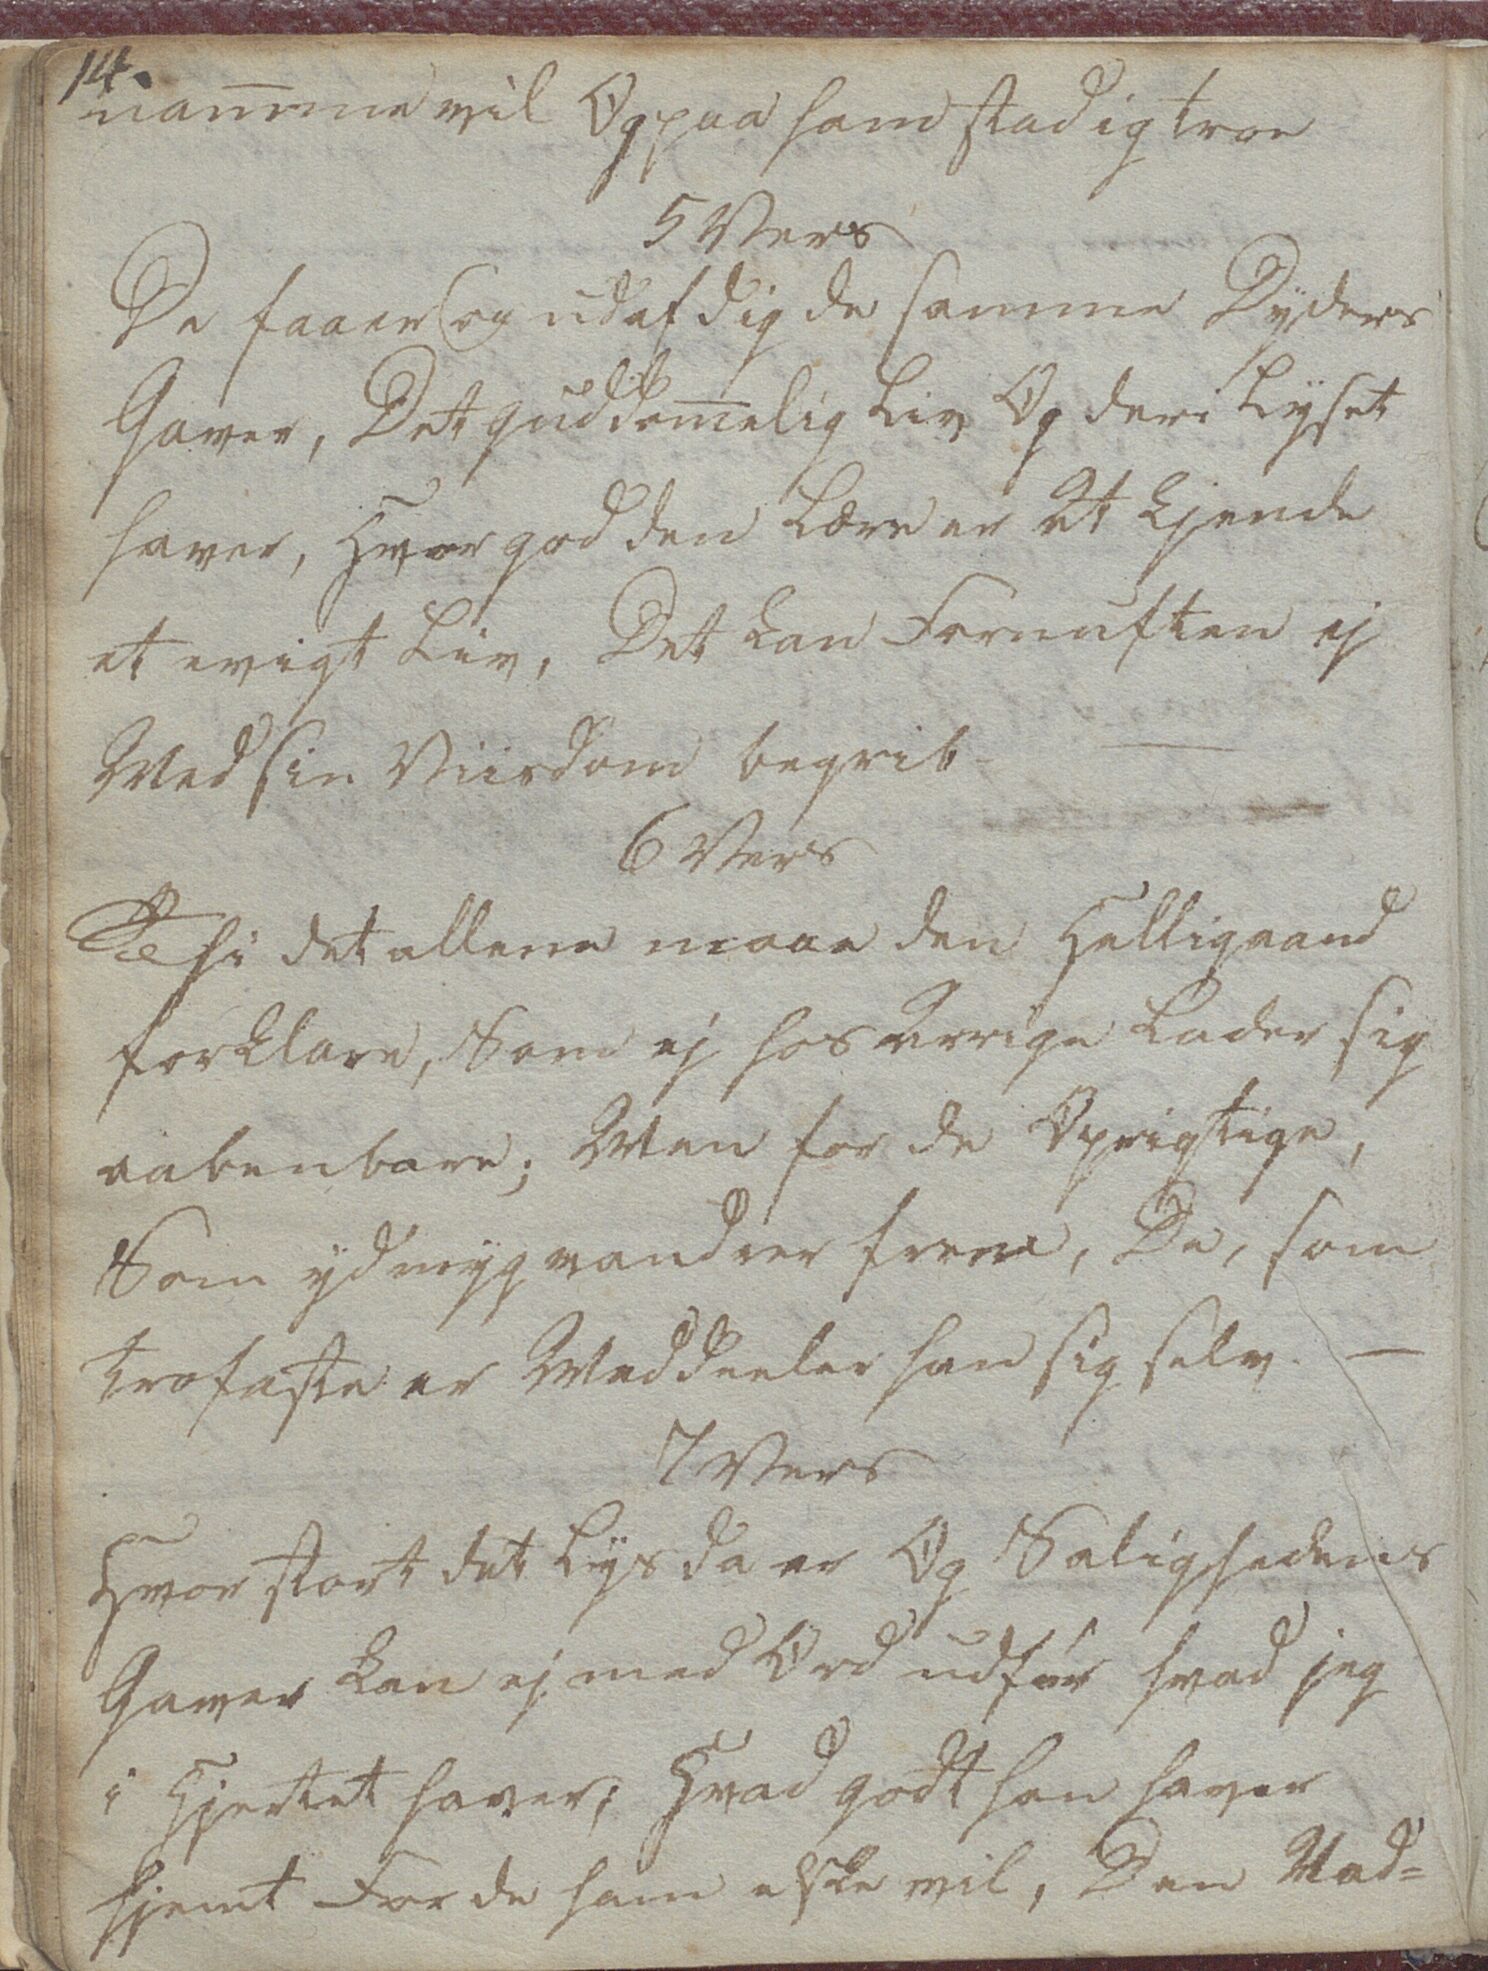 14.
nam̅me vil Og paa ham stadig troe
5 Vers
De faaer og ud af dig de samme Dÿders
Gaver, Det guddom̅elig Liv Og deri Lÿset
haver, Hvor god den Lære er At kjende
et evigt Liv, Det kan Fornuften ej
Med sin Viisdom begrib —
6 Vers
Thi det allene maae den Helligaand
forklare, Som ej hos arrige Lader sig
aabenbare; Men for de Oprigtige,
Som ÿdmÿg vandrer frem, De, som
trofaste er Meddeeler han sig selv. —
7 Vers
Hvor stort det Lÿs da er Og Salighedens
Gaver kan ej med Ord udfør hvad jeg
i Hjertet haver; Hvad godt han haver
hjemt For de ham elske vil, Den Mod=